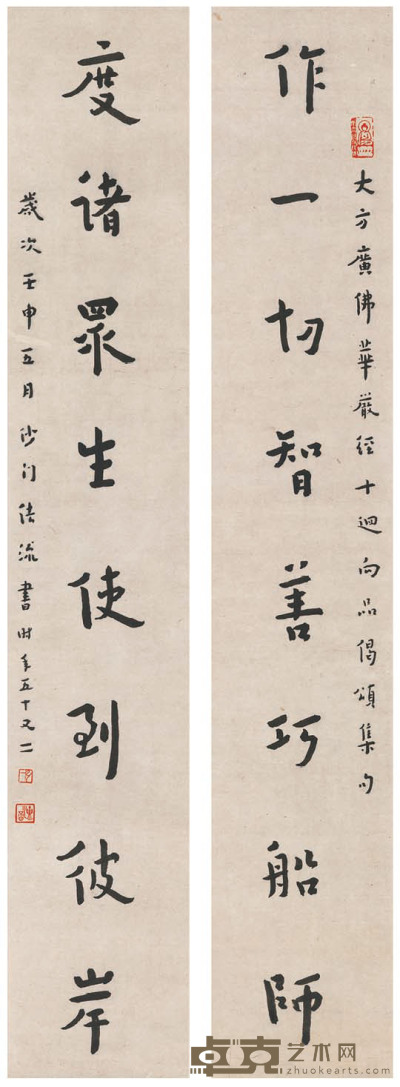 大方廣佛華嚴經十迴向品偈頌集句
作一切智善巧船師
度諸眾生使到彼岸
歲次壬申五月沙門佉流書時年五十又二
卓克艺术网
zhuokearts.com